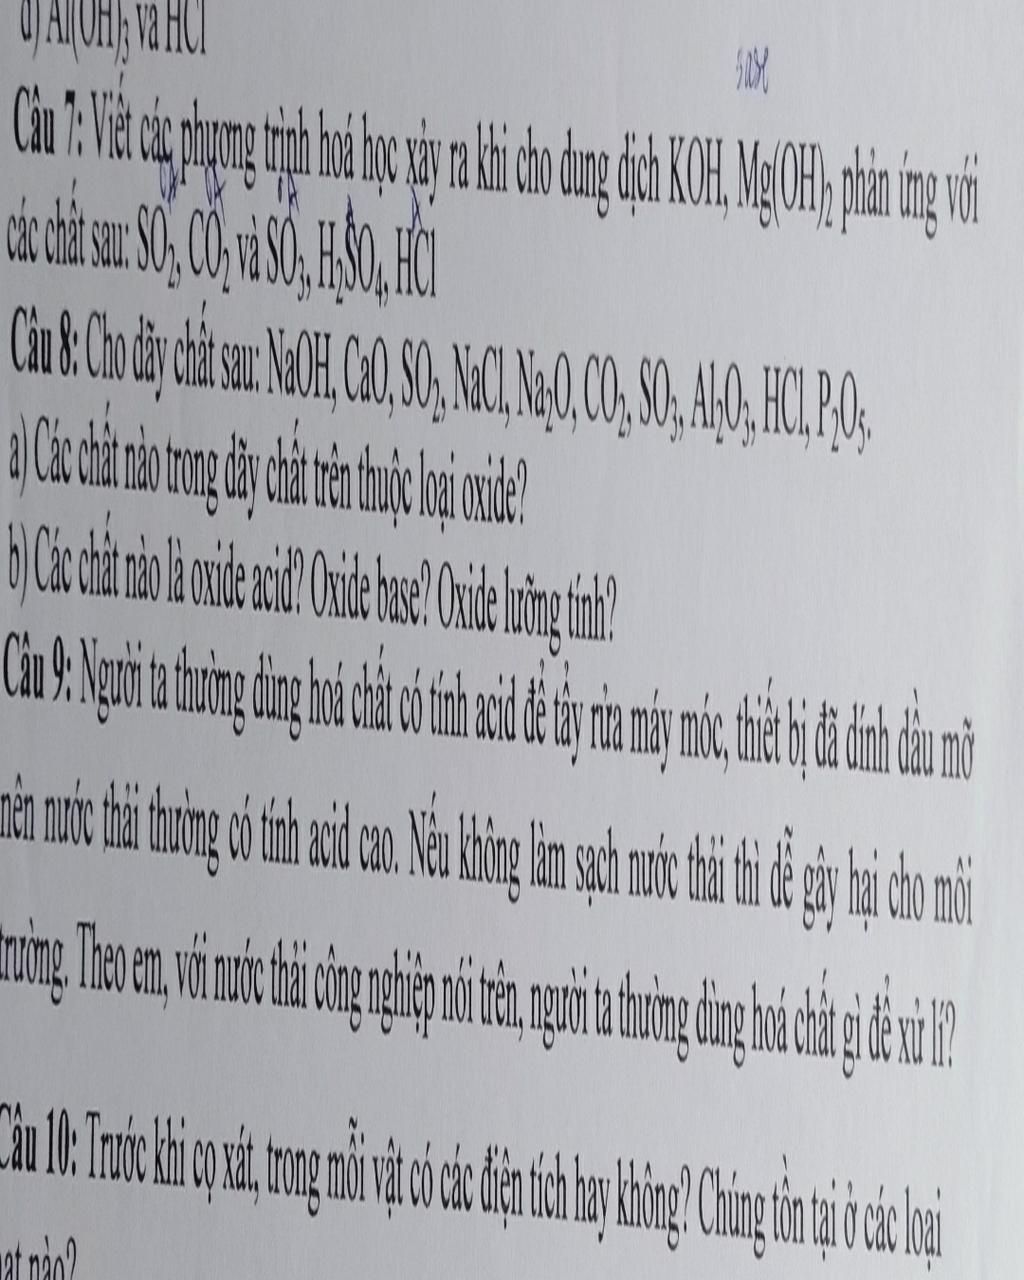 d) Al(OH)₃ và HCl
base
Câu 7: Viết các phương trình hoá học xảy ra khi cho dung dịch KOH, Mg(OH)₂ phản ứng với
OA OA OA A A
các chất sau: SO₂, CO₂ và SO₃, H₂SO₄, HCl
Câu 8: Cho dãy chất sau: NaOH, CaO, SO₂, NaCl, Na₂O, CO₂, SO₃, Al₂O₃, HCl, P₂O₅.
a) Các chất nào trong dãy chất trên thuộc loại oxide?
b) Các chất nào là oxide acid? Oxide base? Oxide lưỡng tính?
Câu 9: Người ta thường dùng hoá chất có tính acid để tẩy rửa máy móc, thiết bị đã dính dầu mỡ
nên nước thải thường có tính acid cao. Nếu không làm sạch nước thải thì dễ gây hại cho môi
trường. Theo em, với nước thải công nghiệp nói trên, người ta thường dùng hoá chất gì để xử lí?
Câu 10: Trước khi cọ xát, trong mỗi vật có các điện tích hay không? Chúng tồn tại ở các loại
nào?